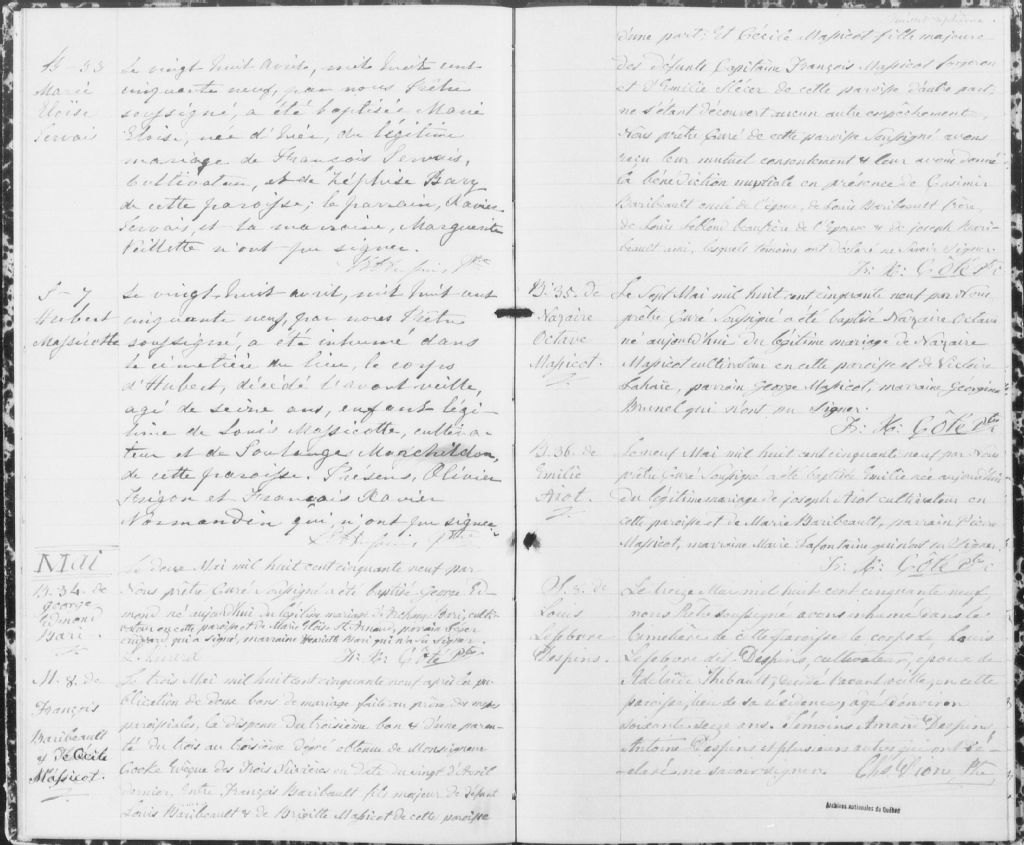 B-33
Marie
Eloïse
Servais
Le vingt huit avril, mil huit cent
cinquante neuf, par nous Prêtre
soussigné, a été baptisée Marie
Eloïse, née d'hier, du légitime
mariage de François Servais,
Cultivateur, et de Zéphise Bary
de cette paroisse; le parrain, Xavier
Servais, et la marraine, Marguerite
Veillette n'ont pu signer.
S-7
Hubert
Massicotte
Le vingt huit avril, mil huit cent
cinquante neuf, par nous Prêtre
soussigné, a été inhumé dans
le cimétière du lieu, le corps
d'Hubert, décédé l'avant veille,
agé de seize ans, enfant légi-
time de Louis Massicotte, cultiva-
teur et de Soulange Marchildon,
de cette paroisse. Présens, Olivier
et François Xavier
Normandin qui, n'ont pu signer.
Mai
B. 34. de
george
Edmond
Bari.
Le deux Mai mil huit cent cinquante neuf par
Nous prêtre Curé Soussigné a été baptisé George Ed-
mond né aujourd'hui du légitime mariage de Bari, culti-
vateur en cette paroisse et de Marie Eloïse St Arnaud, parrain
qui a signé, marraine Henriette Bari qui n'a su signer.
Fr: X: Côté Ptre
M. 8. de
François
Baribeault
et de Cécile
Massicot.
Le trois Mai mil huit cent cinquante neuf après la pu-
blication de deux bans de mariage faite au prône des messes
paroissiales, la dispense du troisième ban & d'une paren-
té du trois au troisième dégré obtenue de Monseigneur
Cooke Evêque des Trois Rivières en date du vingt d'Avril
dernier. Entre François Baribault fils majeur de défunt
Louis Baribeault & de Brigitte Massicot de cette paroisse
d'une part; Et Cécile Massicot fille majeure
des défunts Capitaine François Massicot forgeron
et d'Emilie de cette paroisse d'autre part;
ne s'étant découvert aucun autre empêchement,
Nous prêtre Curé de cette paroisse Soussigné avons
reçu leur mutuel consentement & leur avons donné
la bénédiction nuptiale en présence de Casimir
Baribeault oncle de l'époux, de Louis Baribeault frère,
de Louis beaufrère de l'Epouse & de joseph Bari-
beault ami, lesquels témoins ont déclaré ne Savoir Signer.
Fr: X: Côté Ptre
B. 35. de
Nazaire
Octave
Massicot.
Le Sept Mai mil huit cent cinquante neuf par Nous
prêtre Curé Soussigné a été baptisé Nazaire Octave
né aujourd'hui du légitime mariage de Nazaire
Massicot cultivateur en cette paroisse et de Victoire
Lahaie, parrain George Massicot, marraine Georgina
Brunel qui n'ont su Signer.
Fr: X: Côté Ptre
B. 36. de
Emilie
Arot.
Le neuf Mai mil huit cent cinquante neuf par Nous
prêtre Curé Soussigné a été baptisée Emilie née aujourd'hui
du légitime mariage de joseph Arot cultivateur en
cette paroisse et de Marie Baribeault, parrain Pierre
Massicot, marraine Marie Lafontaine qui n'ont su Signer.
Fr: X: Côté Ptre
S. 8. de
Louis
Lefebvre
Despins.
Le treize Mai mil huit cent cinquante neuf,
nous Ptre soussigné avons inhumé dans le
Cimetière de cette paroisse le corps de Louis
Lefebvre dit Despins, cultivateur, époux de
Adelaïde Thibault, décédé l'avant veille, en cette
paroisse, lieu de sa résidence, agé d'environ
soixante seize ans. Témoins Amand Despins,
Antoine Despins et plusieurs autres qui ont dé-
claré ne savoir signer. Chs Dion, Ptre
Archives nationales du Québec